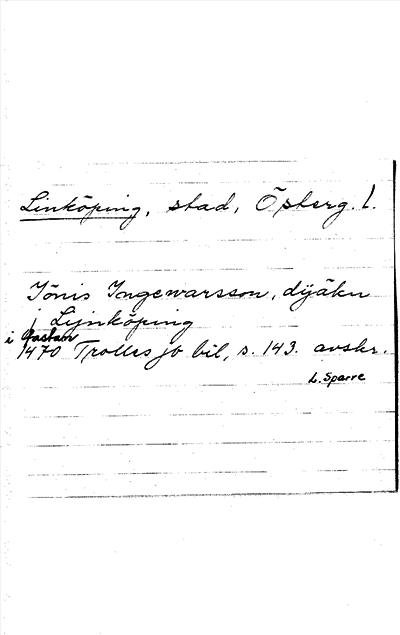 Linköping, stad, Östberg. l.
Jönis Ingewarsson, dijäkn
j Lijnköping
i Gustaw
1470 Trolles jb bil, s. 143. avskr.
L. Sparre